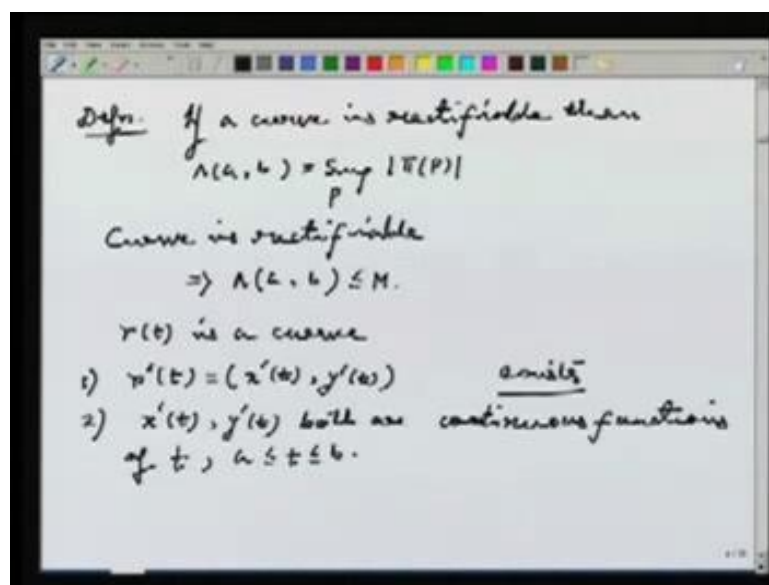 Defn. If a curve is rectifiable then
Λ(a, b) = Sup |π(P)|
P
Curve is rectifiable
=> Λ(a, b) ≤ M.
r(t) is a curve
1) r'(t) = (x'(t), y'(t)) exists
2) x'(t), y'(t) both are continuous functions
of t, a ≤ t ≤ b.